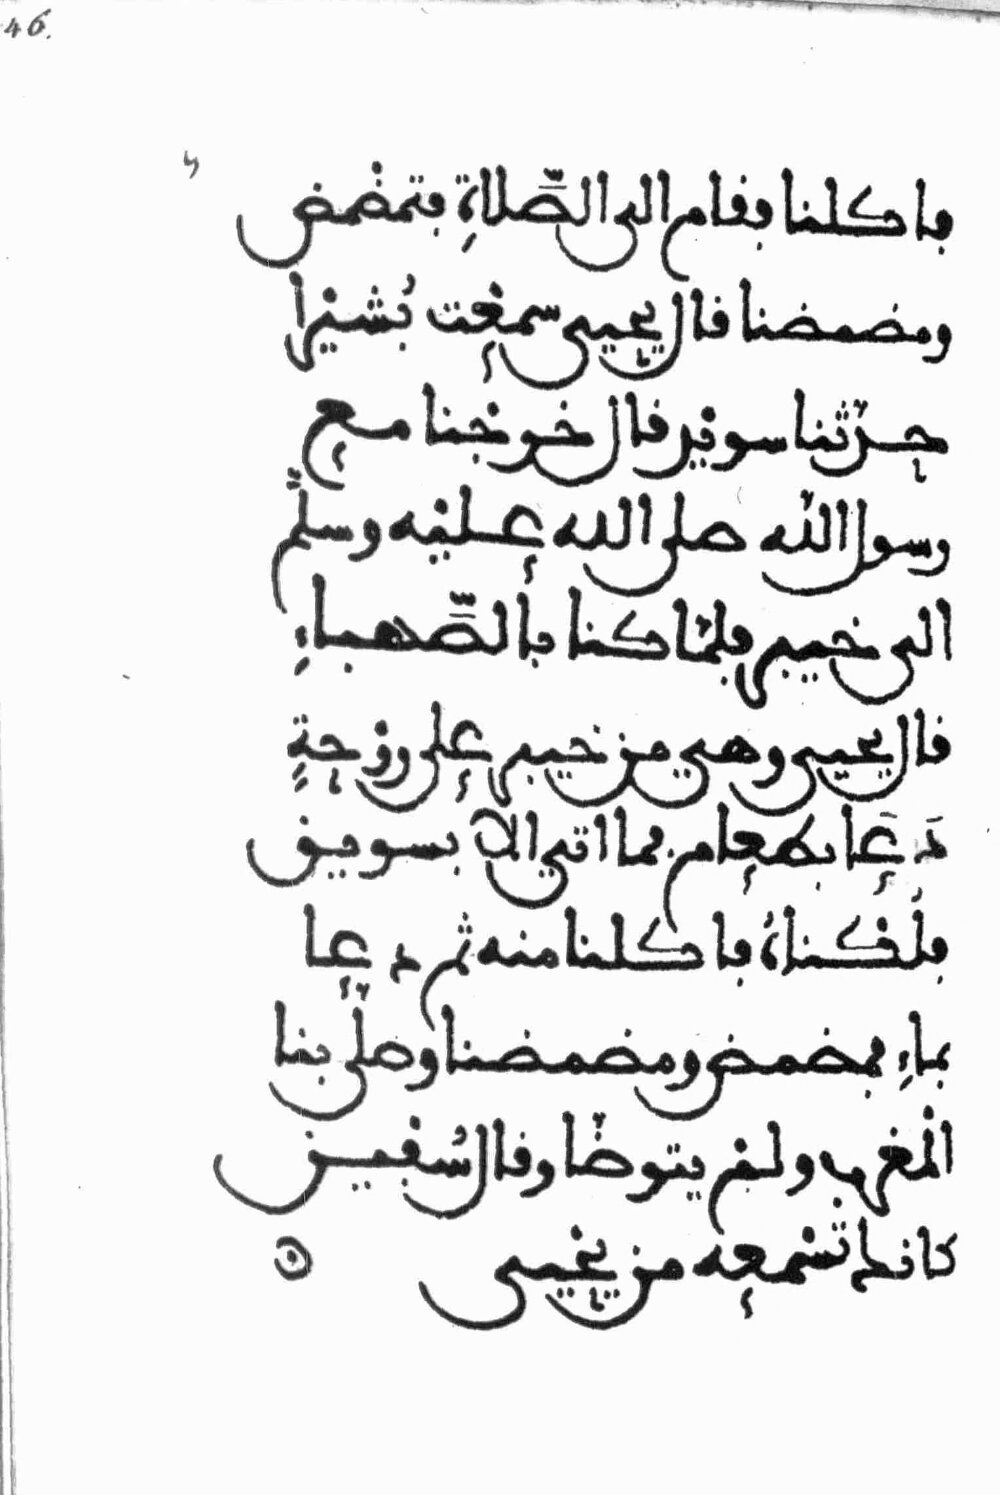 46.
فاكلنا فقام الى الصَّلاةِ فتمضْمض
ومضمضنا قال يحيى سمعْت بُشيْرا
حدّثنا سويْد قال خرجْنا مع
رسول اللّه صلى الله عليْه وسلّم
الى خيبر فلمّا كنا بالصَّهباءِ
قال يحيى وهي من خيبر على روْحةٍ
دَعَا بطعام فما اتي الا بسويق
فلُكْناهُ فاكلنا منه ثم دعا
بماءٍ فمضمض ومضمضنا وصلّى بنا
الْمغرب ولمْ يتوضّا وقال سُفْين
كانك تسْمعه من يحْيى